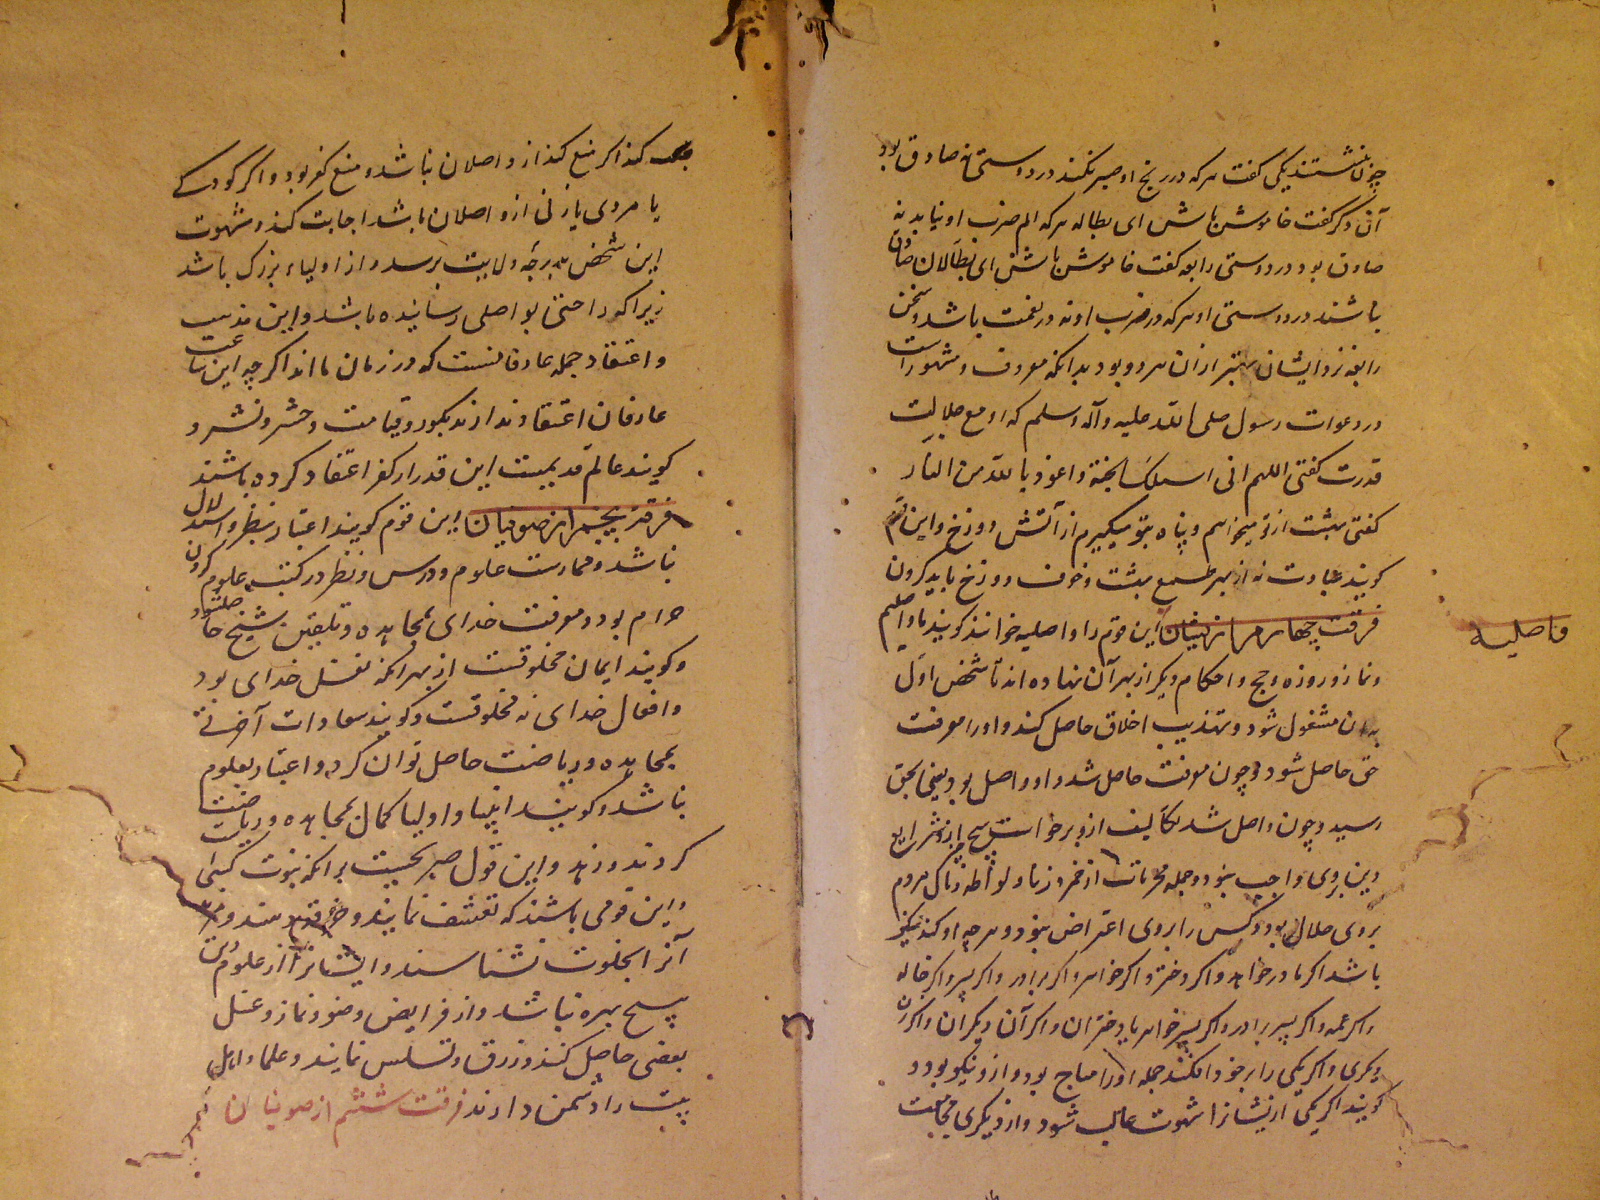 چون بنشستند یکی گفت هرکه در رنج او صبر نکند در دوستی صادق بود
آن دگر گفت خاموش باش ای بطاله هرکه الم ضرب او نیابد نه
صادق بود در دوستی رابعه گفت خاموش باش ای بطالان صادق
باشند در دوستی او هرکه در ضرب او نه در نعمت باشد و سخن
رابعه نزد ایشان بهتر از ان هر دو بود بدانکه معروف و مشهور است
در دعوات رسول صلی الله علیه وآله وسلم که او مع جلالت
قدرت گفتی اللهم انی اسئلک الجنة واعوذ بالله من النار
کفتی بهشت از تو میخواهم و پناه بتو میگیرم از آتش دوزخ واین قوم
کویند عبادت نه از بهر طمع بهشت وخوف دوزخ باید کردن
فرقت چهارم از ایشان این قوم را واصلیه خوانند کویند ما واصلیم
واصلیه
ونماز وروزه وحج واحکام دیگر از بهر آن نهاده اند تا شخص اول
بدان مشغول شود وتهذیب اخلاق حاصل کند واورا معرفت
حق حاصل شود وچون معرفت حاصل شد او واصل بود یعنی بحق
رسید وچون واصل شد تکالیف ازو برخواست هیچ از شرایع
دین بروی واجب نبود وجمله محرمات از خمر وزنا ولواطه ومال مردم
بروی حلال بود وکس را بروی اعتراض نبود وهرچه او کند نیکو
باشد اکر مادر خواهد واکر دختر واکر خواهر واکر برادر واکر پسر واکر خاله
واکر عمه واکر پسر برادر واکر پسر خواهر یا دختران واکر آن دیگران واکر زن
دیگری واکر یکی را بر خود افکند جمله اورا مباح بود وازو نیکو بود و
کویند اکر یکی از ایشانرا شهوت غالب شود واز دیگری مجامعت
طلب کند اکر منع کند از واصلان نباشد ومنع کفر بود واکر کودکی
یا مردی یا زنی از واصلان باشد اجابت کند وشهوت
این شخص بدرجه ولایت برسد واز اولیاء بزرک باشد
زیرا که راحتی بواصلی رسانیده باشد واین مذهب
واعتقاد جمله عارفانست که در زمان ما اند اکرچه این جماعت
عارفان اعتقاد ندارند بکور وقیامت وحشر ونشر و
کویند عالم قدیمست این قدر از کفر اعتقاد کرده باشند
فرقت پنجم از صوفیان این قوم کویند اعتبار بنظر واستدلال
نباشد وممارست علوم ودرس ونظر در کتب علوم کردن
حرام بود ومعرفت خدای بمجاهده وتلقین شیخ حاصل شود
وکویند ایمان مخلوقست از بهر انکه فعل خدای بود
وافعال خدای نه مخلوقست وکویند سعادات آخرتی
بمجاهده وریاضت حاصل توان کرد واعتبار بعلوم
نباشد وکویند انبیا واولیا کمال بمجاهده وریاضت
کردند وزهد واین قول صریحست بر انکه نبوت کسبی است
واین قومی باشند که تقشف نمایند وخرقه
آنرا بخلوت نشناسند وایشانرا از علوم دین
هیچ بهره نباشد واز فرایض وضو ونماز وغسل
بعضی حاصل کنند وزرق وتسلس نمایند وعلما واهل
بیت را دشمن دارند فرقت ششم از صوفیان